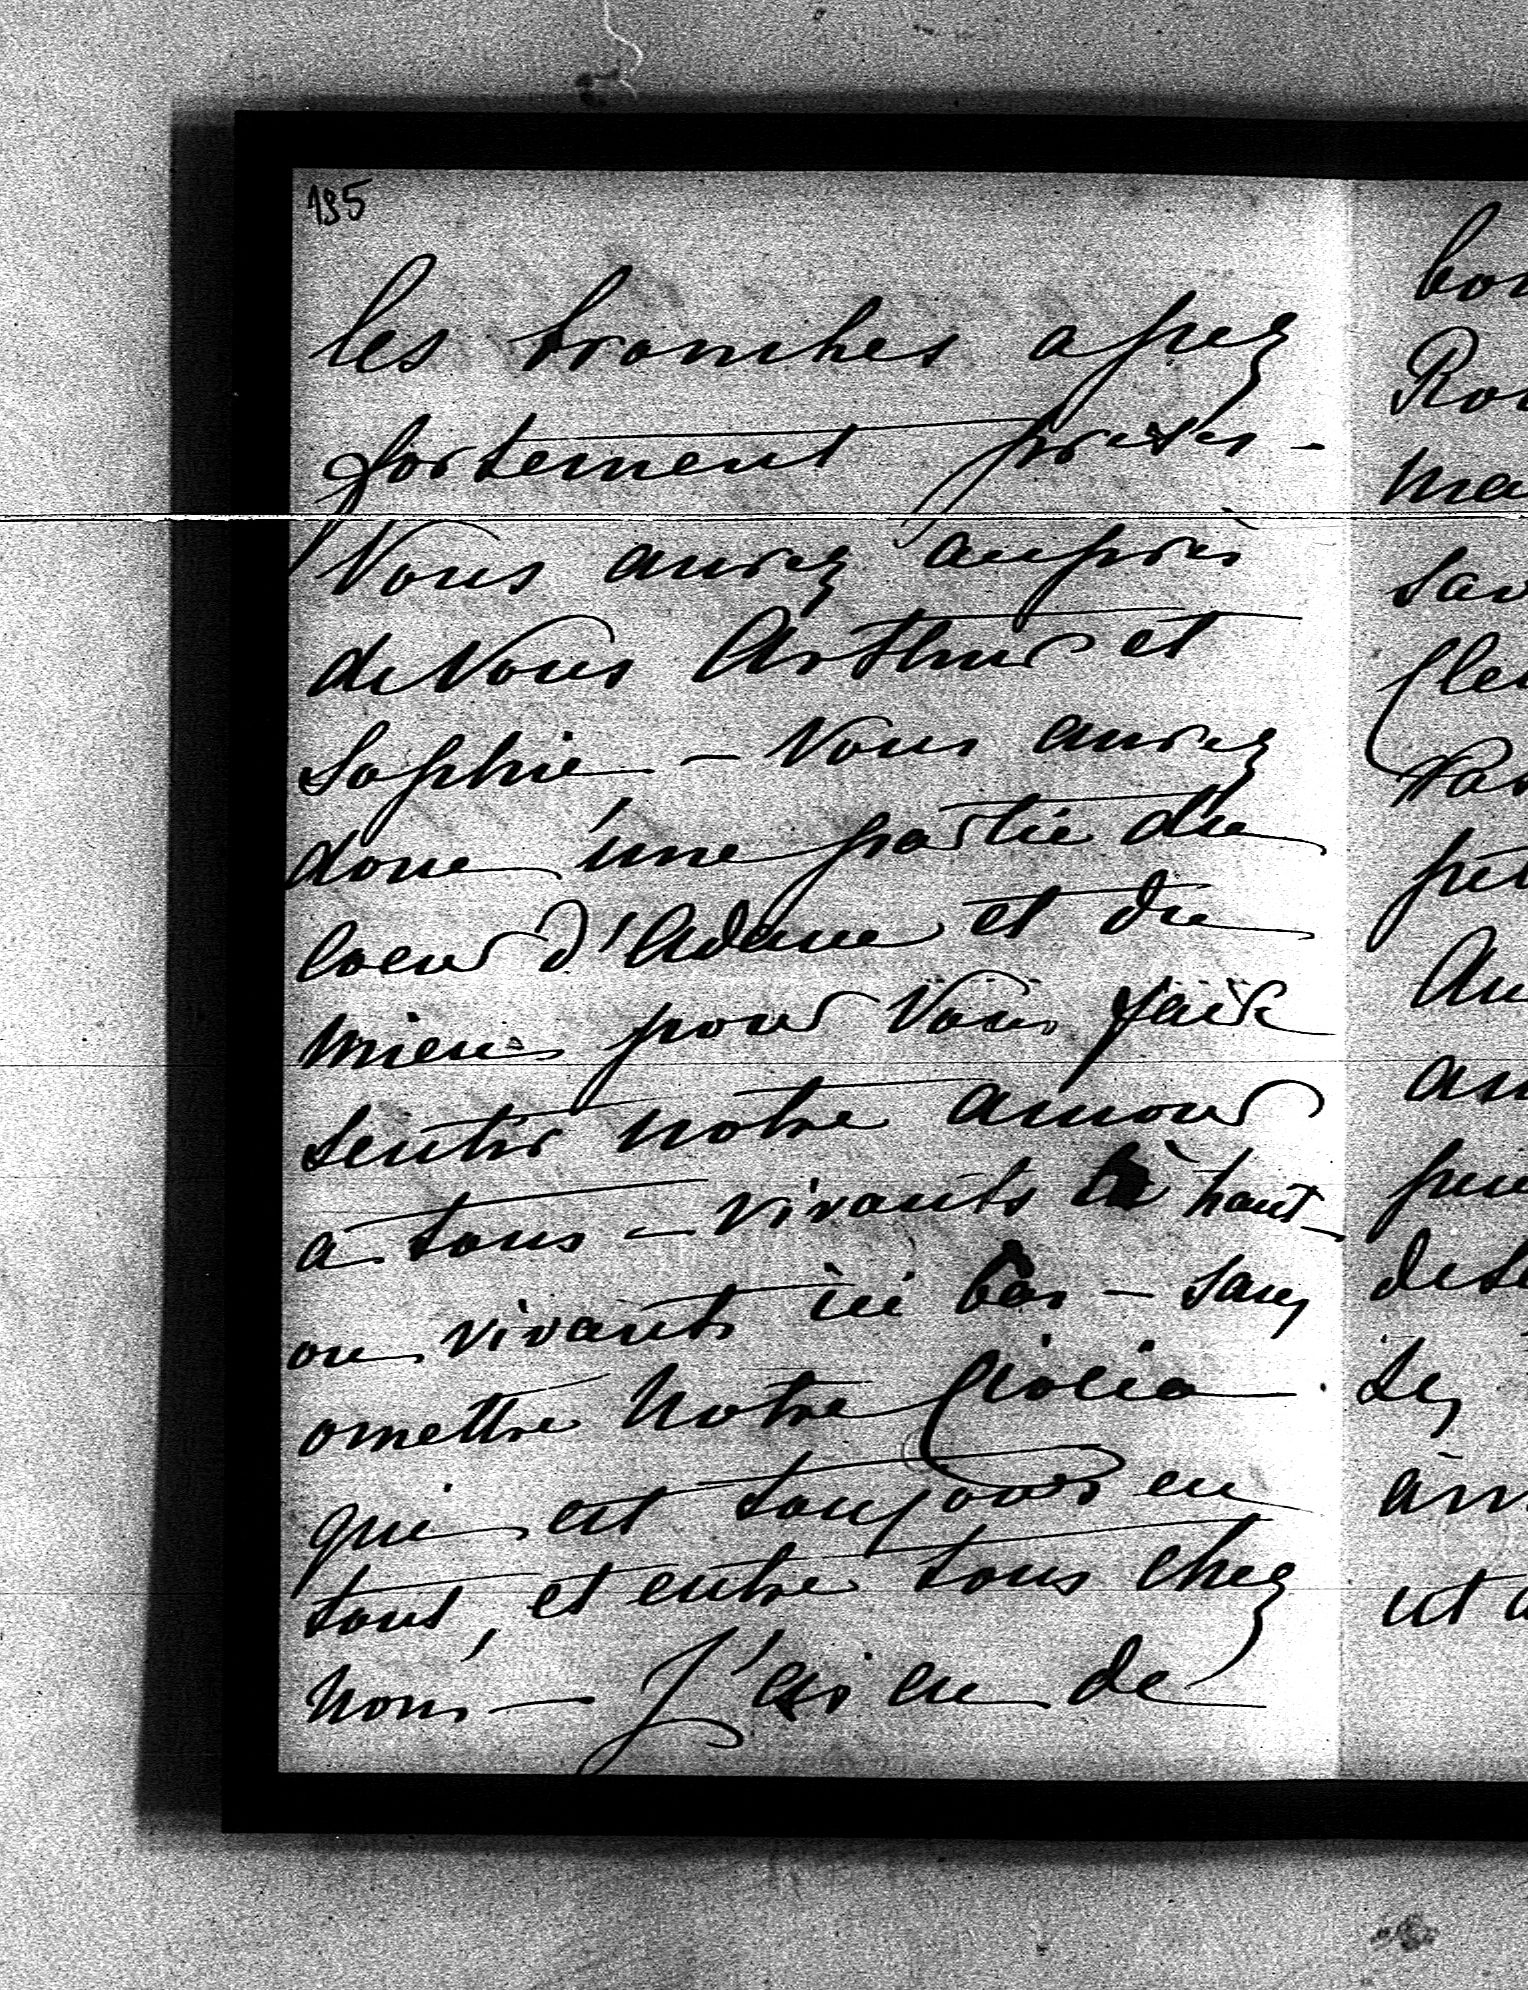 195
les bronches assez
fortement prises -
Vous aurez auprès
de Vous Arthur et
Sophie - Vous aurez
donc une partie du
coeur d'Adam et du
mien pour Vous faire
sentir notre amour
a tous - vivants là haut
ou vivants ici bas - sans
omettre notre
qui est toujours en
tous, et entre tous chez
nous - J'ai eu de